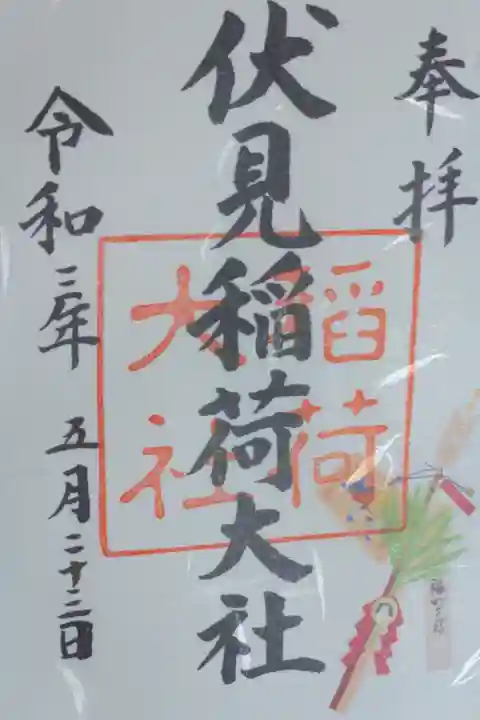 奉拝
伏見稲荷大社
稲荷
大社
令和三年 五月二十三日